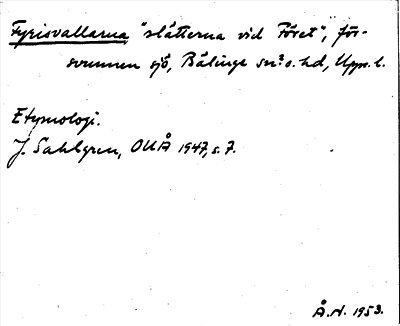 Fyrisvallarna "slätterna vid Föret", för-
svunnen sjö, Bälinge sn o. hd, Upps. l.
Etymologi.
J. Sahlgren, OUÅ 1947, s. 7.
Å.N. 1953.